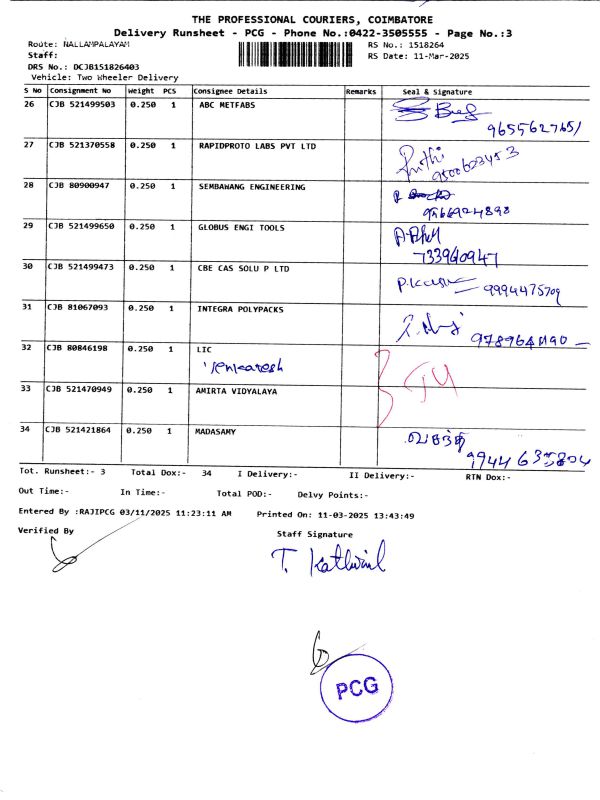 THE PROFESSIONAL COURIERS, COIMBATORE
Delivery Runsheet - PCG - Phone No.:0422-3505555 - Page No.:3
Route: NALLAMPALAYAM RS No.: 1518264
Staff: RS Date: 11-Mar-2025
DRS No.: DCJB151826403
Vehicle: Two Wheeler Delivery
S No Consignment No Weight PCS Consignee Details Remarks Seal & Signature
26 CJB 521499503 0.250 1 ABC METFABS
27 CJB 521370558 0.250 1 RAPIDPROTO LABS PVT LTD
28 CJB 80900947 0.250 1 SEMBAWANG ENGINEERING
9566924898
29 CJB 521499650 0.250 1 GLOBUS ENGI TOOLS
733940947
30 CJB 521499473 0.250 1 CBE CAS SOLU P LTD
9994475709
31 CJB 81067093 0.250 1 INTEGRA POLYPACKS
32 CJB 80846198 0.250 1 LIC
Venkatesh
33 CJB 521470949 0.250 1 AMIRTA VIDYALAYA
34 CJB 521421864 0.250 1 MADASAMY
வசந்தி
Tot. Runsheet:- 3 Total Dox:- 34 I Delivery:- II Delivery:- RTN Dox:-
Out Time:- In Time:- Total POD:- Delvy Points:-
Entered By :RAJIPCG 03/11/2025 11:23:11 AM Printed On: 11-03-2025 13:43:49
Verified By Staff Signature
PCG